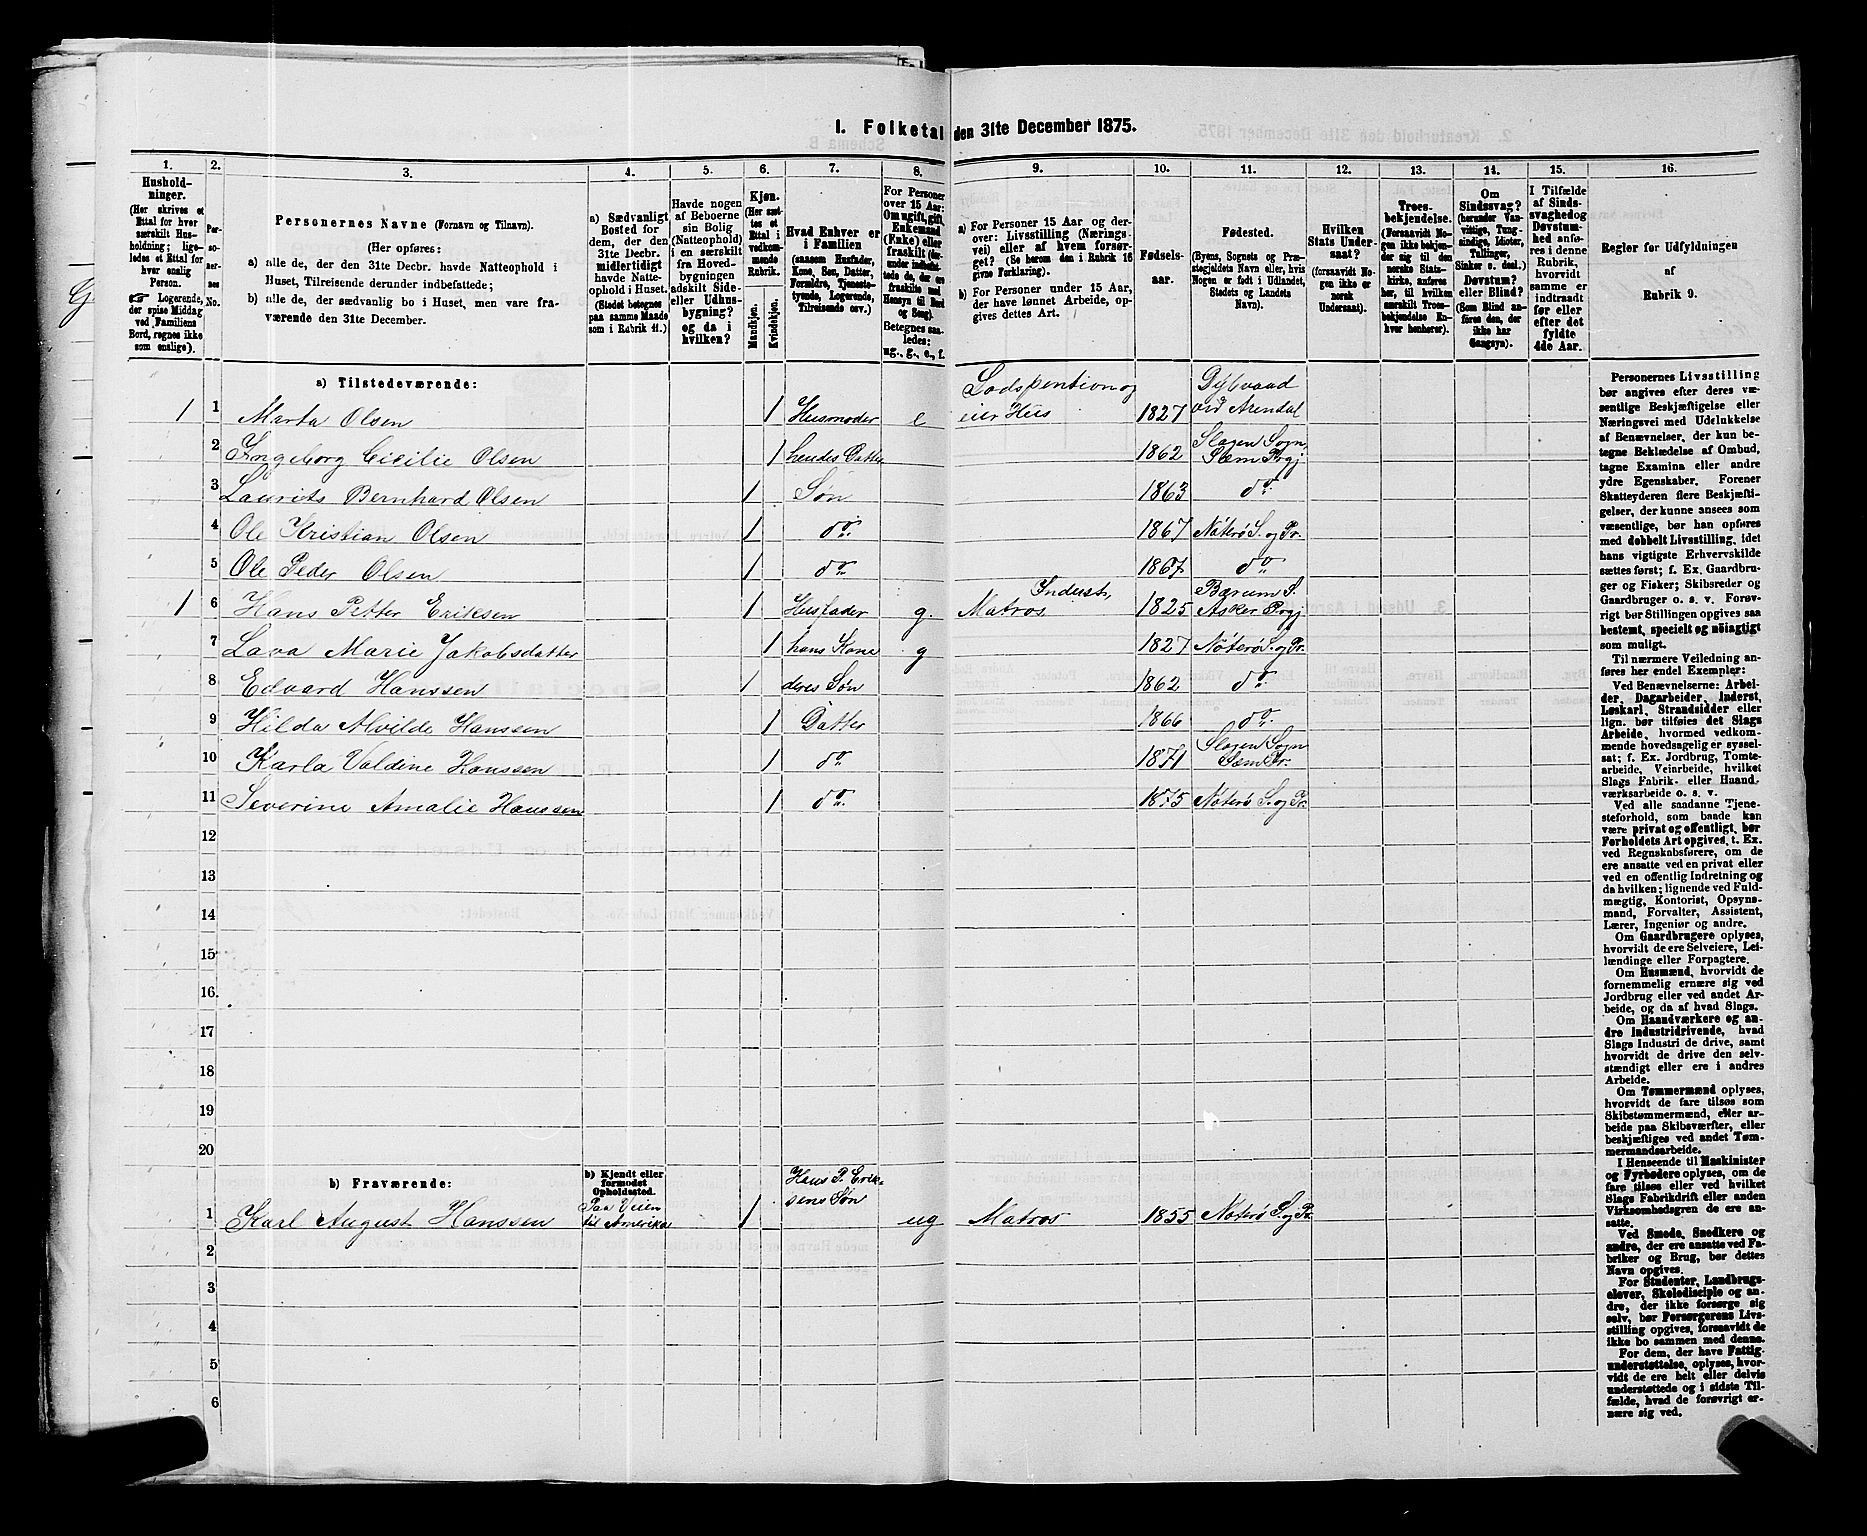 1. Folketal den 31te December 1875.
1. 2. 3. 4. 5. 6. 7. 8. 9. 10. 11. 12. 13. 14. 15. 16.
Hushold-
ninger.
(Her skrives et
Ettal for hver
særskilt Hus-
holdning; lige-
ledes et Ettal for
hver enslig
Person.
☞ Logerende,
der spise Middag
ved Familiens
Bord, regnes ikke
som enslige).
Per-
so-
ner-
nes
No.
Personernes Navne (Fornavn og Tilnavn).
(Her opføres:
a) alle de, der den 31te Decbr. havde Natteophold i
Huset, Tilreisende derunder indbefattede;
b) alle de, der sædvanlig bo i Huset, men vare fra-
værende den 31te December.
a) Sædvanligt
Bosted for
dem, der den
31te Decbr.
midlertidigt
havde Natte-
ophold i Huset.
(Stedet betegnes
paa samme Maade
som i Rubrik 11.)
Havde nogen
af Beboerne
sin Bolig
(Natteophold)
i en særskilt
fra Hoved-
bygningen
adskilt Side-
eller Udhus-
bygning?
og da i
hvilken?
Kjøn.
(Her sæt-
tes et
Ettal i
vedkom-
mende
Rubrik.
Mandkjøn.
Kvindekjøn.
Hvad Enhver er
i Familien
(saasom Husfader,
Kone, Søn, Datter,
Forældre, Tjeneste-
tyende, Logerende,
Tilreisende osv.)
For Personer
over 15 Aar:
Om ugift, gift,
Enkemand
(Enke) eller
fraskilt (der-
under indbefat-
tede de, der ere
fraskilte med
Hensyn til Bord
og Seng).
Betegnes saa-
ledes:
ug., g., e., f.
a) For Personer 15 Aar og der-
over: Livsstilling (Nærings-
vei) eller af hvem forsør-
get? (Se herom den i Rubrik 16
givne Forklaring).
b) For Personer under 15 Aar,
der have lønnet Arbeide, op-
gives dettes Art.
Fødsels-
aar.
Fødested.
(Byens, Sognets og Præ-
stegjeldets Navn eller, hvis
Nogen er født i Udlandet,
Stedets og Landets
Navn).
Hvilken
Stats Under-
saat?
(forsaavidt No-
gen ikke er
norsk
Undersaat).
Troes-
bekjendelse.
(Forsaavidt No-
gen ikke bekjen-
der sig til den
norske Stats-
kirke, anføres
her, til hvilken
særskilt Troes-
bekjendelse En-
hver henhører).
Om
Sindssvag?
(herunder Van-
vittige, Tung-
sindige, Idioter,
Tullinger,
Sinker o. desl.)
Døvstum?
eller Blind?
(Som Blind an-
føres den, der
ikke har
Gangsyn).
I Tilfælde
af Sinds-
svaghed og
Døvstum-
hed anfø-
res i denne
Rubrik,
hvorvidt
samme er
indtraadt
før eller
efter det
fyldte
4de Aar.
Regler for Udfyldningen
af
Rubrik 9.
a) Tilstedeværende:
1 1 Marta Olsen 1 Husmoder e Lodspention og eier Hus 1827 Dybvaad ved Arendal
2 Ingeborg Cicilie Olsen 1 hendes Datter 1862 Slagen Sogn Sem Prgj
3 Laurits Bernhard Olsen 1 Søn 1863 do
4 Ole Kristian Olsen 1 do 1867 Nøterø S. og Pr.
5 Ole Peder Olsen 1 do 1867 do
1 6 Hans Petter Eriksen 1 Husfader g. Inderst, Matros 1825 Bærum S. Asker Prgj
7 Lava Marie Jakobsdatter 1 hans Kone g 1827 Nøterø S. og Pr.
8 Edvard Hanssen 1 deres Søn 1862 do
9 Hilda Alvilde Hanssen 1 Datter 1866 do
10 Karla Valdine Hanssen 1 do 1871 Slagen Sogn Sem Pr.
11 Severine Amalie Hanssen 1 do 1875 Nøterø S. og Pr.
12
13
14
15
16.
17
18
19
20
b) Fraværende:
b) Kjendt eller
formodet
Opholdssted.
1 Karl August Hanssen Paa Veien til Amerika 1 Hans P. Erik-sens Søn ug Matros 1855 Nøterø S. og Pr.
2
3
4
5
6
Personernes Livsstilling
bør angives efter deres væ-
sentlige Beskjæftigelse eller
Næringsvei med Udelukkelse
af Benævnelser, der kun be-
tegne Beklædelse af Ombud,
tagne Examina eller andre
ydre Egenskaber. Forener
Skatteyderen flere Beskjæfti-
gelser, der kunne ansees som
væsentlige, bør han opføres
med dobbelt Livsstilling, idet
hans vigtigste Erhvervskilde
sættes først; f. Ex. Gaardbru-
ger og Fisker; Skibsreder og
Gaardbruger o. s. v. Forøv-
rigt bør Stillingen opgives saa
bestemt, specielt og nøiagtigt
som muligt.
Til nærmere Veiledning an-
føres her endel Exempler:
Ved Benævnelserne: Arbei-
der, Dagarbeider, Inderst,
Løskarl, Strandsidder eller
lign. bør tilføies det Slags
Arbeide, hvormed vedkom-
mende hovedsagelig er syssel-
sat; f. Ex. Jordbrug, Tomte-
arbeide, Veiarbeide, hvilket
Slags Fabrik- eller Haand-
værksarbeide o. s. v.
Ved alle saadanne Tjene-
steforhold, som baade kan
være privat og offentligt, bør
Forholdets Art opgives, t. Ex.
ved Regnskabsførere, om de
ere ansatte ved en privat eller
ved en offentlig Indretning og
da hvilken; lignende ved Fuld-
mægtig, Kontorist, Opsyns-
mand, Forvalter, Assistent,
Lærer, Ingeniør og andre.
Om Gaardbrugere oplyses,
hvorvidt de ere Selveiere, Lei-
lændinge eller Forpagtere.
Om Husmænd, hvorvidt de
fornemmelig ernære sig ved
Jordbrug eller ved andet Ar-
beide, og da af hvad Slags.
Om Haandværkere og an-
dre Industridrivende, hvad
Slags Industri de drive, samt
hvorvidt de drive den selv-
stændigt eller ere i andres
Arbeide.
Om Tømmermænd oplyses,
hvorvidt de fare tilsøs som
Skibstømmermænd, eller ar-
beide paa Skibsværfter, eller
beskjæftiges ved andet Tøm-
mermandsarbeide.
I Henseende til Maskinister
og Fyrbødere oplyses, om de
fare tilsøs eller ved hvilket
Slags Fabrikdrift eller anden
Virksomhedsgren de ere an-
satte.
Ved Smede, Snedkere og
andre, der ere ansatte ved Fa-
briker og Brug, bør dettes
Navn opgives.
For Studenter, Landbrugs-
elever, Skoledisciple og an-
dre, der ikke forsørge sig
selv, bør Forsørgerens Livs-
stilling opgives, forsaavidt de
ikke bo sammen med denne.
For dem, der have Fattig-
understøttelse, oplyses, hvor-
vidt de ere helt eller delvis
understøttede og i sidste Til-
fælde, hvad de forøvrigt er-
nære sig ved.